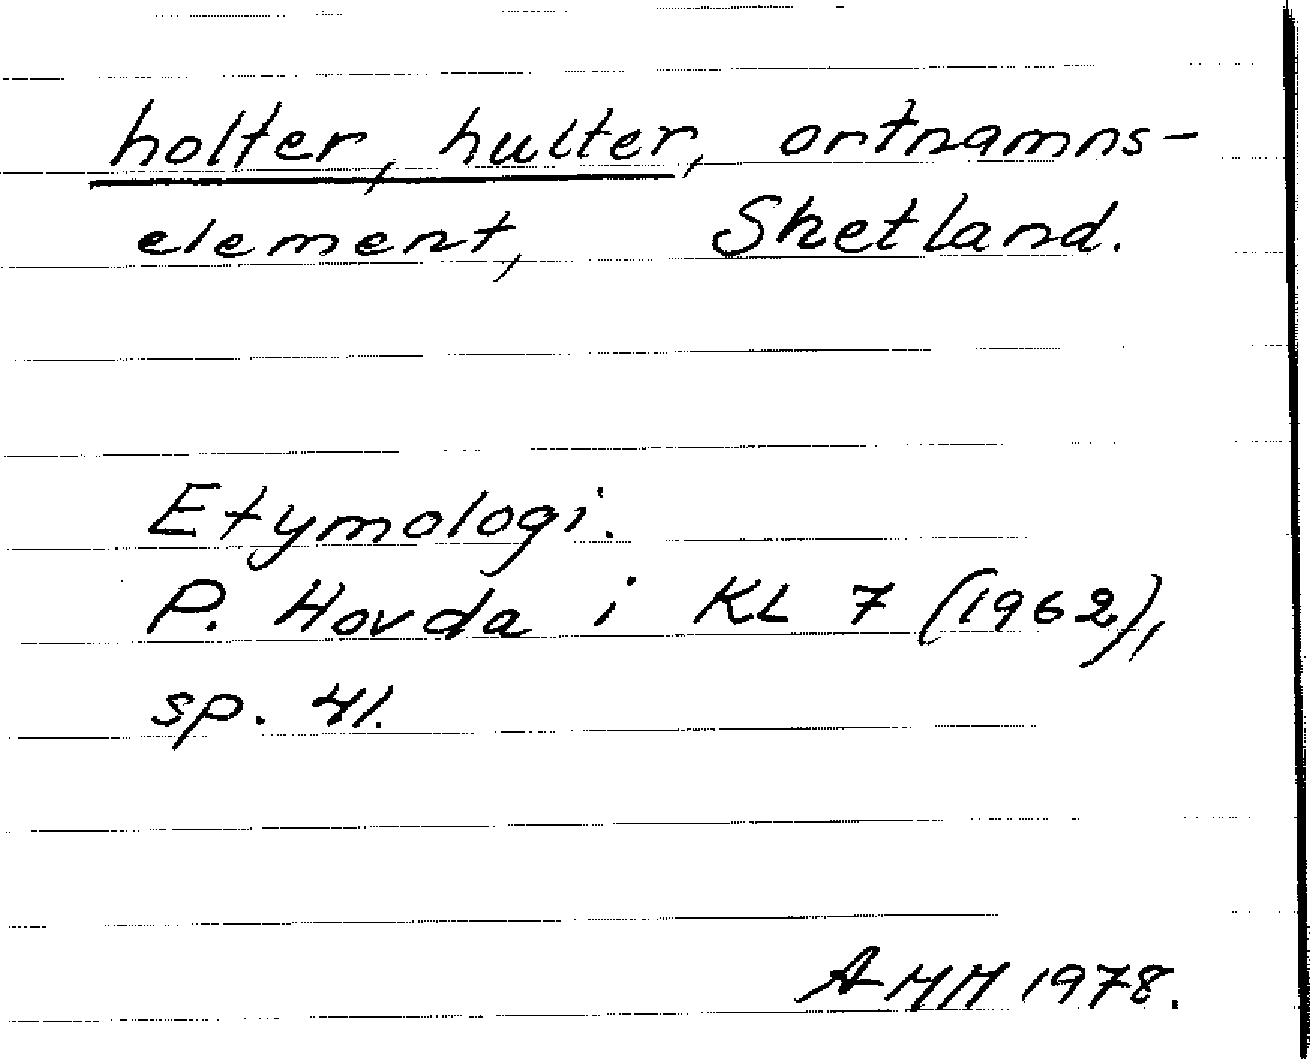 holter, hulter, ortnamns-
element, Shetland.
Etymologi.
P. Hovda i KL 7 (1962),
sp. 41.
AMM 1978.